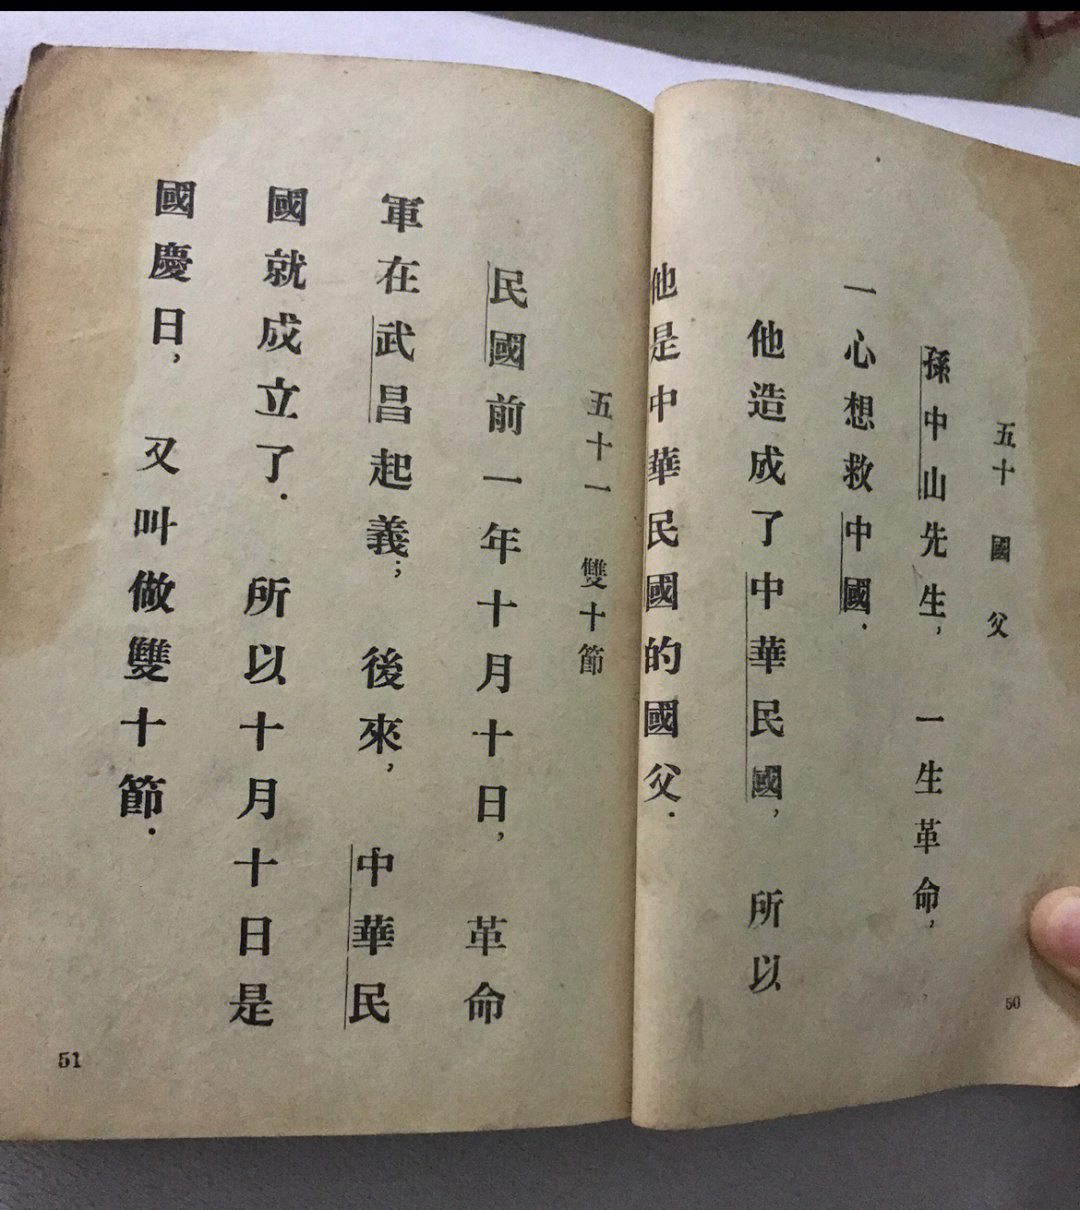 五十 國 父
孫中山先生, 一生革命,
一心想救中國.
他造成了中華民國, 所以
他是中華民國的國父.
50
五十一 雙十節
民國前一年十月十日, 革命
軍在武昌起義; 後來, 中華民
國就成立了. 所以十月十日是
國慶日, 又叫做雙十節.
51